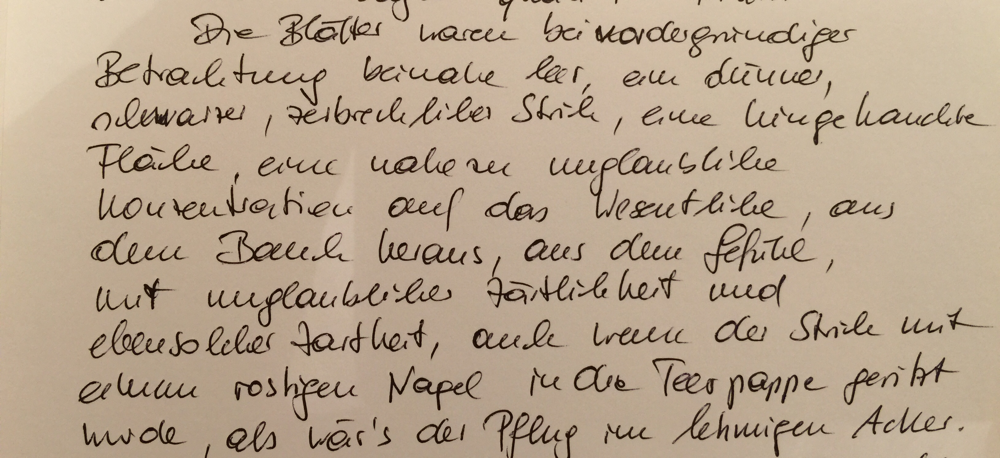 Die Blätter waren bei vordergründiger
Betrachtung beinahe leer, ein dünner,
schwarzer, zerbrechlicher Strich, eine hingehauchte
Fläche, eine nahezu unglaubliche
Konzentration auf das Wesentliche, aus
dem Bauch heraus, aus dem Gefühl,
mit unglaublicher Zärtlichkeit und
ebensolcher Zartheit, auch wenn der Strich mit
einem rostigen Nagel in die Teerpappe geritzt
wurde, als wär's der Pflug im lehmigen Acker.